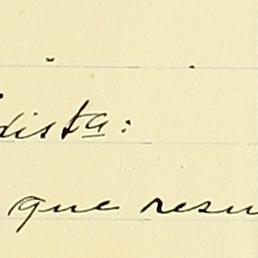 dista:
que resu